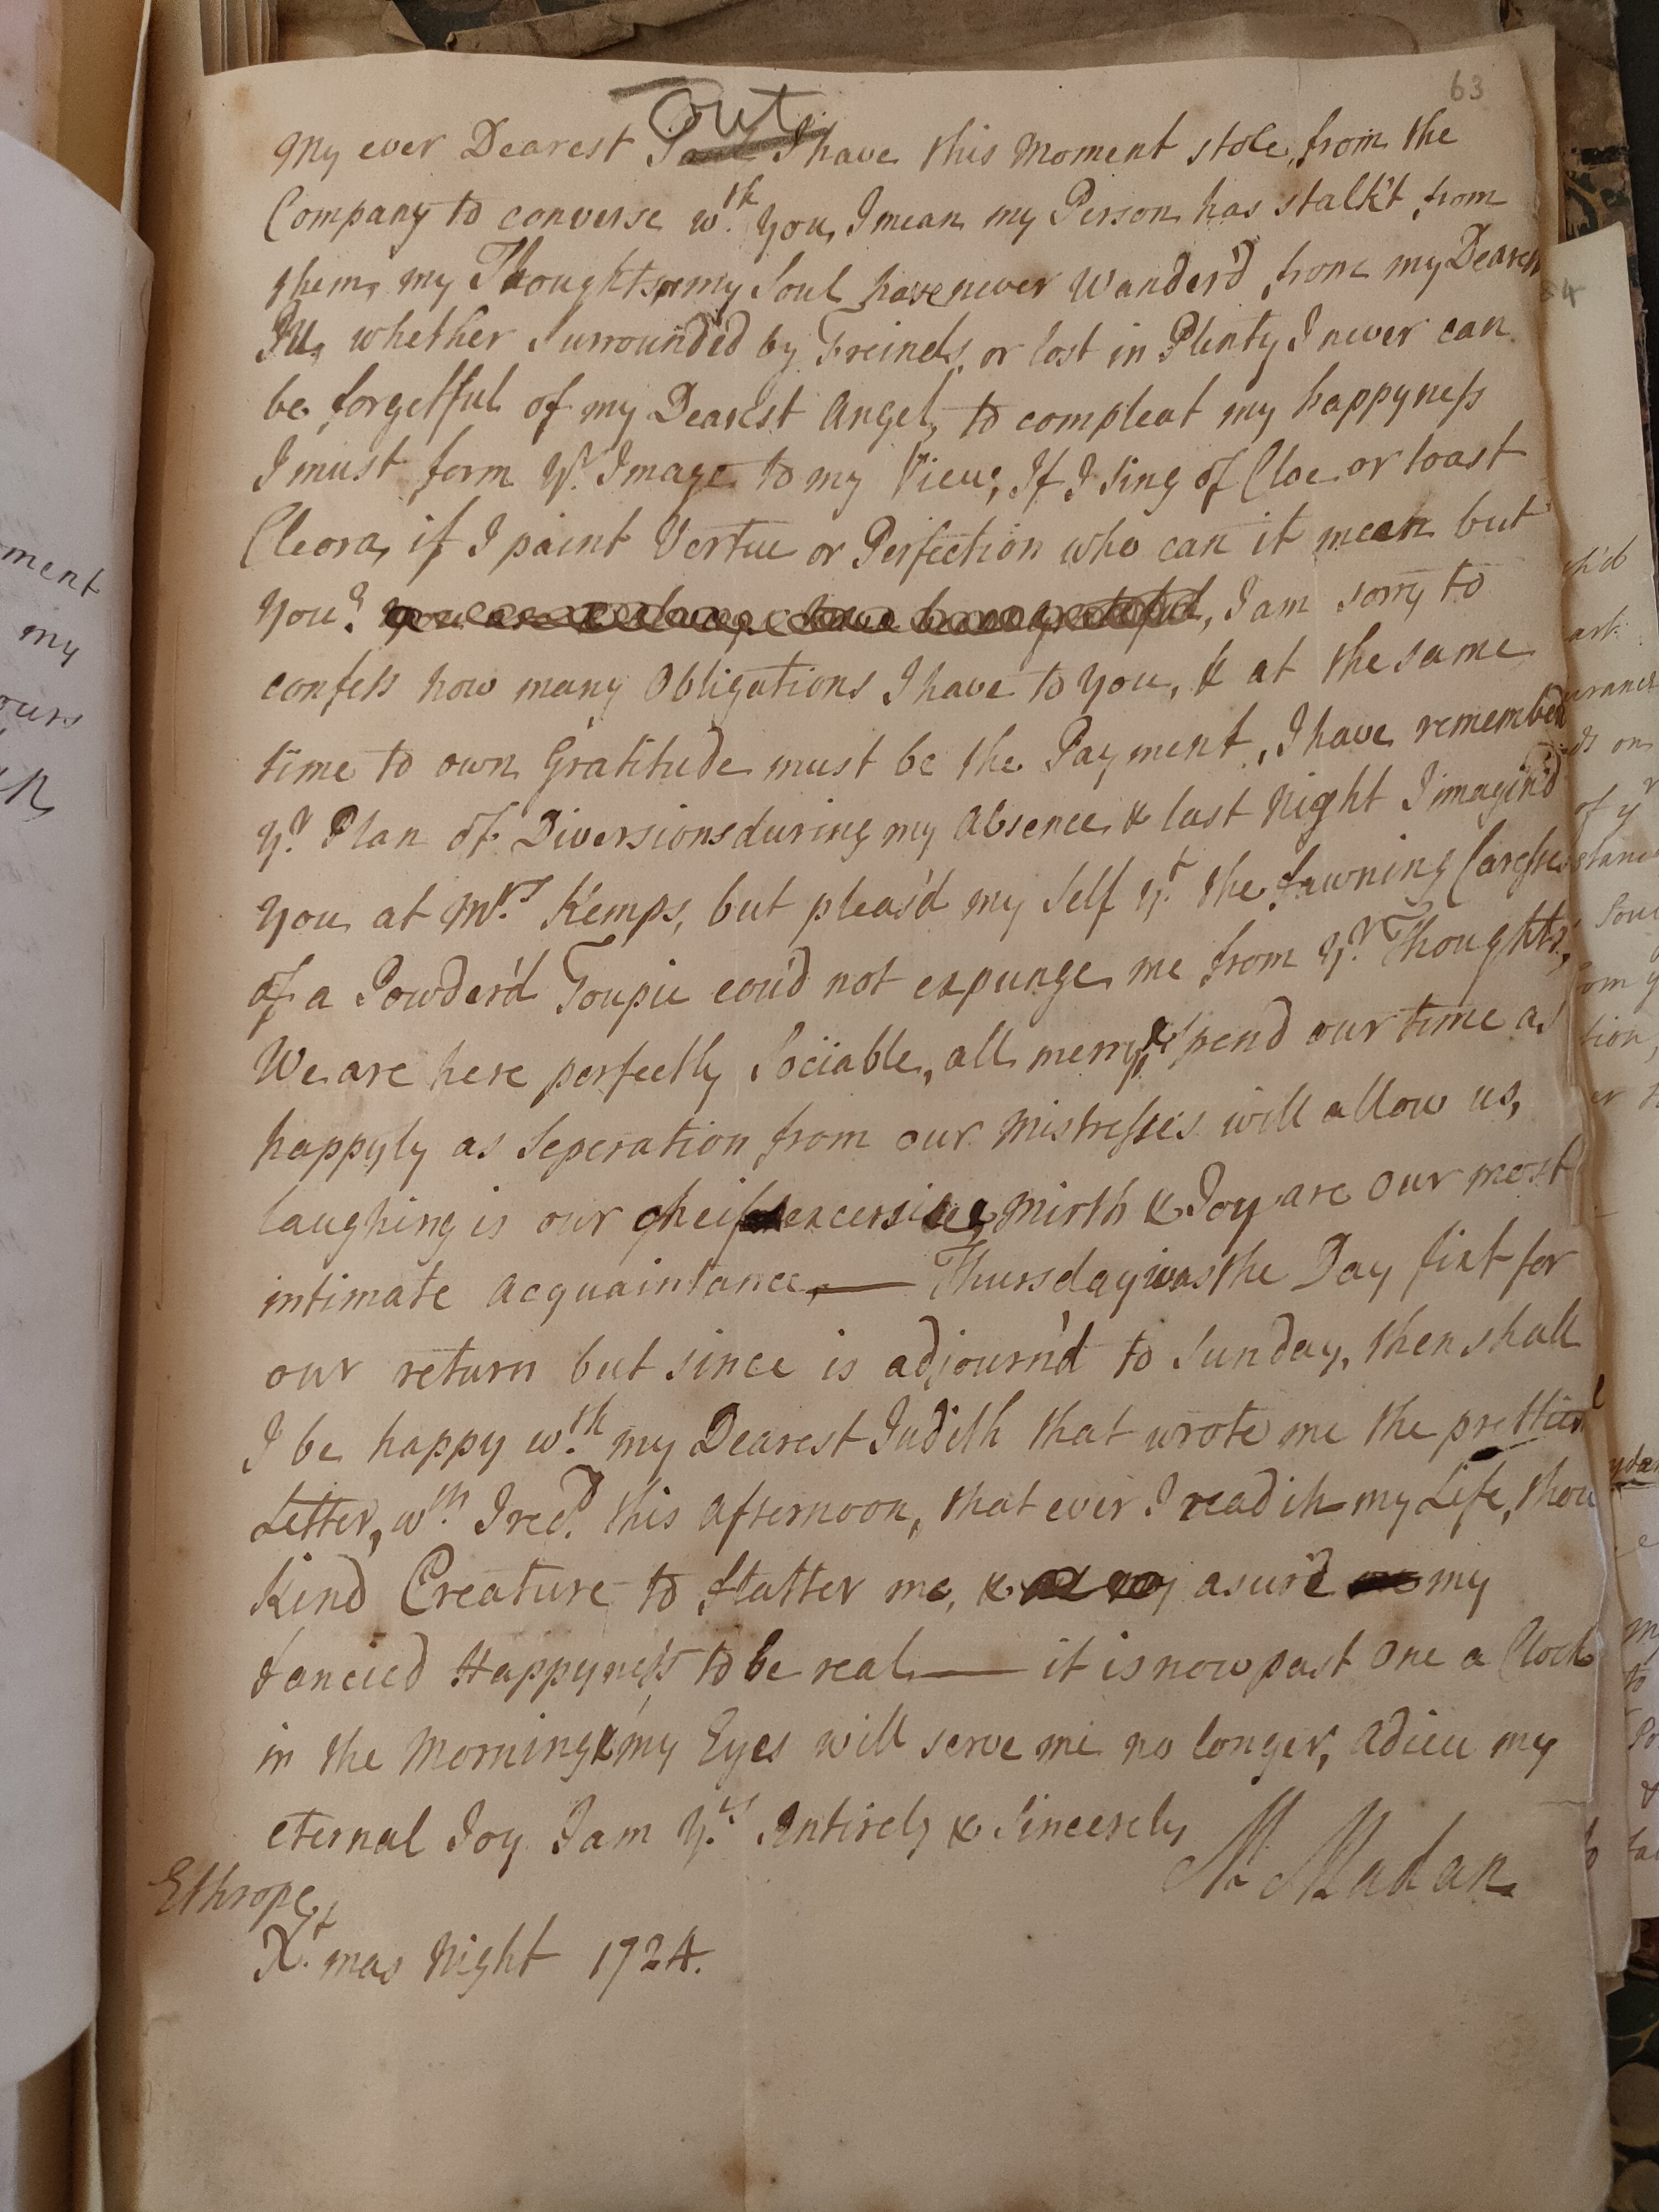 63
Out
My ever Dearest I have this Moment stole from the
Company to converse wth. you, I mean my Person has stalk't from
them, my Thoughts my Soul have never Wander'd from my Dearest
Ju, whether Surrounded by Freinds or lost in Plenty I never can
be forgetful of my Dearest Angel, to compleat my happyness
I must form yr. Image to my View, If I sing of Cloe or toast
Cleora, if I paint Vertue or Perfection who can it mean but
you? I am sorry to
confess how many Obligations I have to you, & at the same
time to own Gratitude must be the Payment, I have rememberd
yr. Plan of Diversions during my Absence & last Night I imagin'd
you at Mrs. Kemps, but pleas'd my Self yt. the fawning Caresses
of a Powder'd Toupie cou'd not expunge me from yr. Thoughts,
We are here perfectly Sociable, all merry, & Spend our time as
happyly as Seperation from our Mistresses will allow us,
laughing is our cheif excersise, Mirth & Joy are our most
intimate Acquaintance, — Thursday was the Day fixt for
our return but since is adjourn'd to Sunday, then shall
I be happy wth. my Dearest Judith that wrote me the prettiest
Letter, wch. I recd. this Afternoon, that ever I read in my Life, thou
Kind Creature to flatter me, & asure my
fancied Happyness to be real — it is now past One a Clock
in the Morning & my Eyes will serve me no longer, Adieu my
eternal Joy I am yrs. Intirely & Sincerely
M Madan
Ethrope
Xt. mas Night 1724.
64
ment
my
ours
of yr